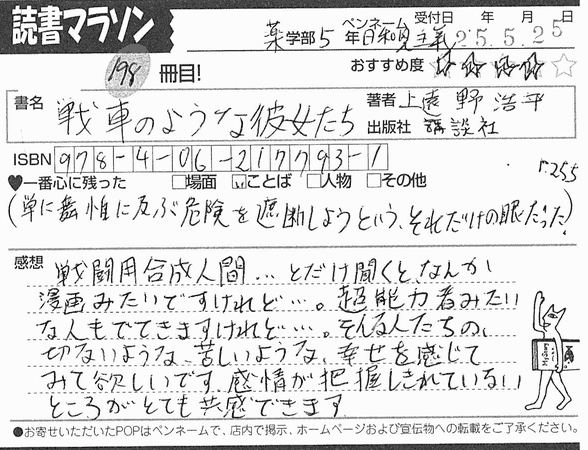 読書マラソン
薬学部5年 ペンネーム 日和見主義 受付日 25年5月25日
198冊目!
おすすめ度 ☆☆☆☆☆
書名 戦車のような彼女たち
著者 上遠野浩平
出版社 講談社
ISBN 978-4-06-217793-1
♥一番心に残った □場面 ☑ことば □人物 □その他
P.255
(単に舞惟に及ぶ危険を遮断しようという、それだけの眼だった)
感想
戦闘用合成人間…とだけ聞くと、なんか
漫画みたいですけれど…。超能力者みたい
な人もでてきますけれど…。そんな人たちの、
切ないような、苦しいような、幸せを感じて
みて欲しいです。感情が把握しきれていない
ところがとても共感できます
●お寄せいただいたPOPはペンネームで、店内で掲示、ホームページおよび宣伝物への転載をご了承ください。